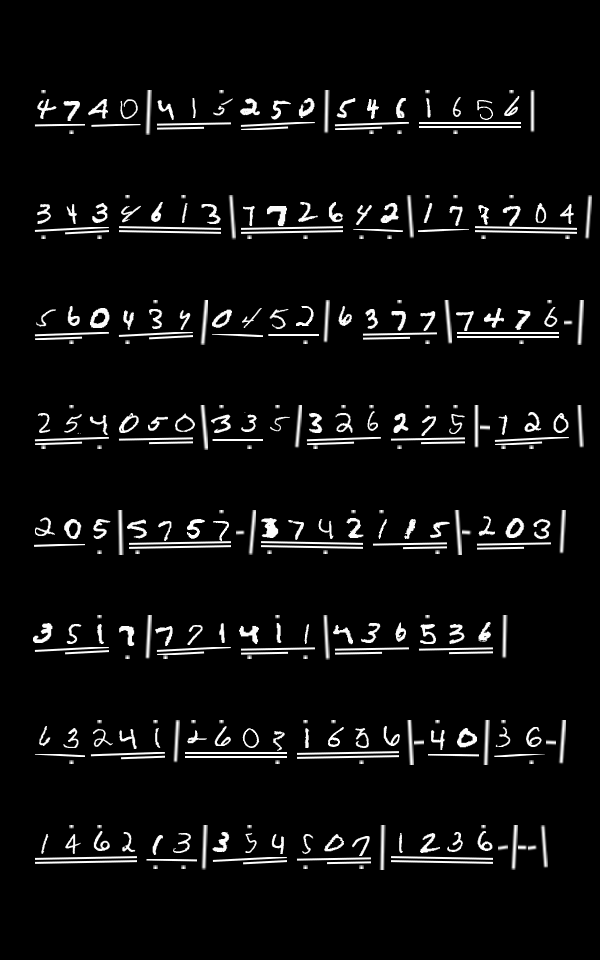 4740|415250|5461656
34334613|772642|177704
560434|0452|6377|7476-|
254050|335|326275|-120|
205|5757-|3742115|-203|
3517|771411|436536|
63241|26031656|-40|36-|
146213|354507|1236-|--|